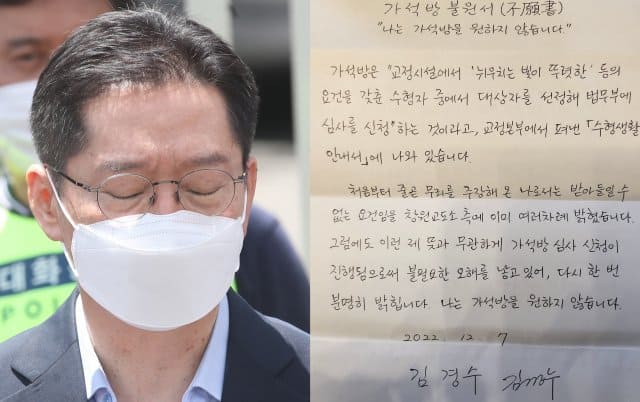 대화
POL
가석방 불원서 (不願書)
"나는 가석방을 원하지 않습니다."
가석방은 "교정시설에서 '뉘우치는 빛이 뚜렷한' 등의
요건을 갖춘 수형자 중에서 대상자를 선정해 법무부에
심사를 신청"하는 것이라고, 교정본부에서 펴낸 「수형생활
안내서」에 나와 있습니다.
처음부터 줄곧 무죄를 주장해 온 나로서는 받아들일 수
없는 요건임을 창원교도소 측에 이미 여러차례 밝혔습니다.
그럼에도 이런 제 뜻과 무관하게 가석방 심사 신청이
진행됨으로써 불필요한 오해를 낳고 있어, 다시 한 번
분명히 밝힙니다. 나는 가석방을 원하지 않습니다.
2022. 12. 7
김경수